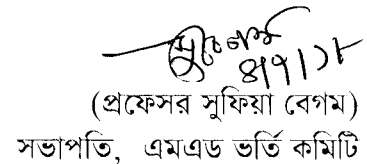 ৪/৭/১৮
(প্রফেসর সুফিয়া বেগম)
সভাপতি, এমএড ভর্তি কমিটি